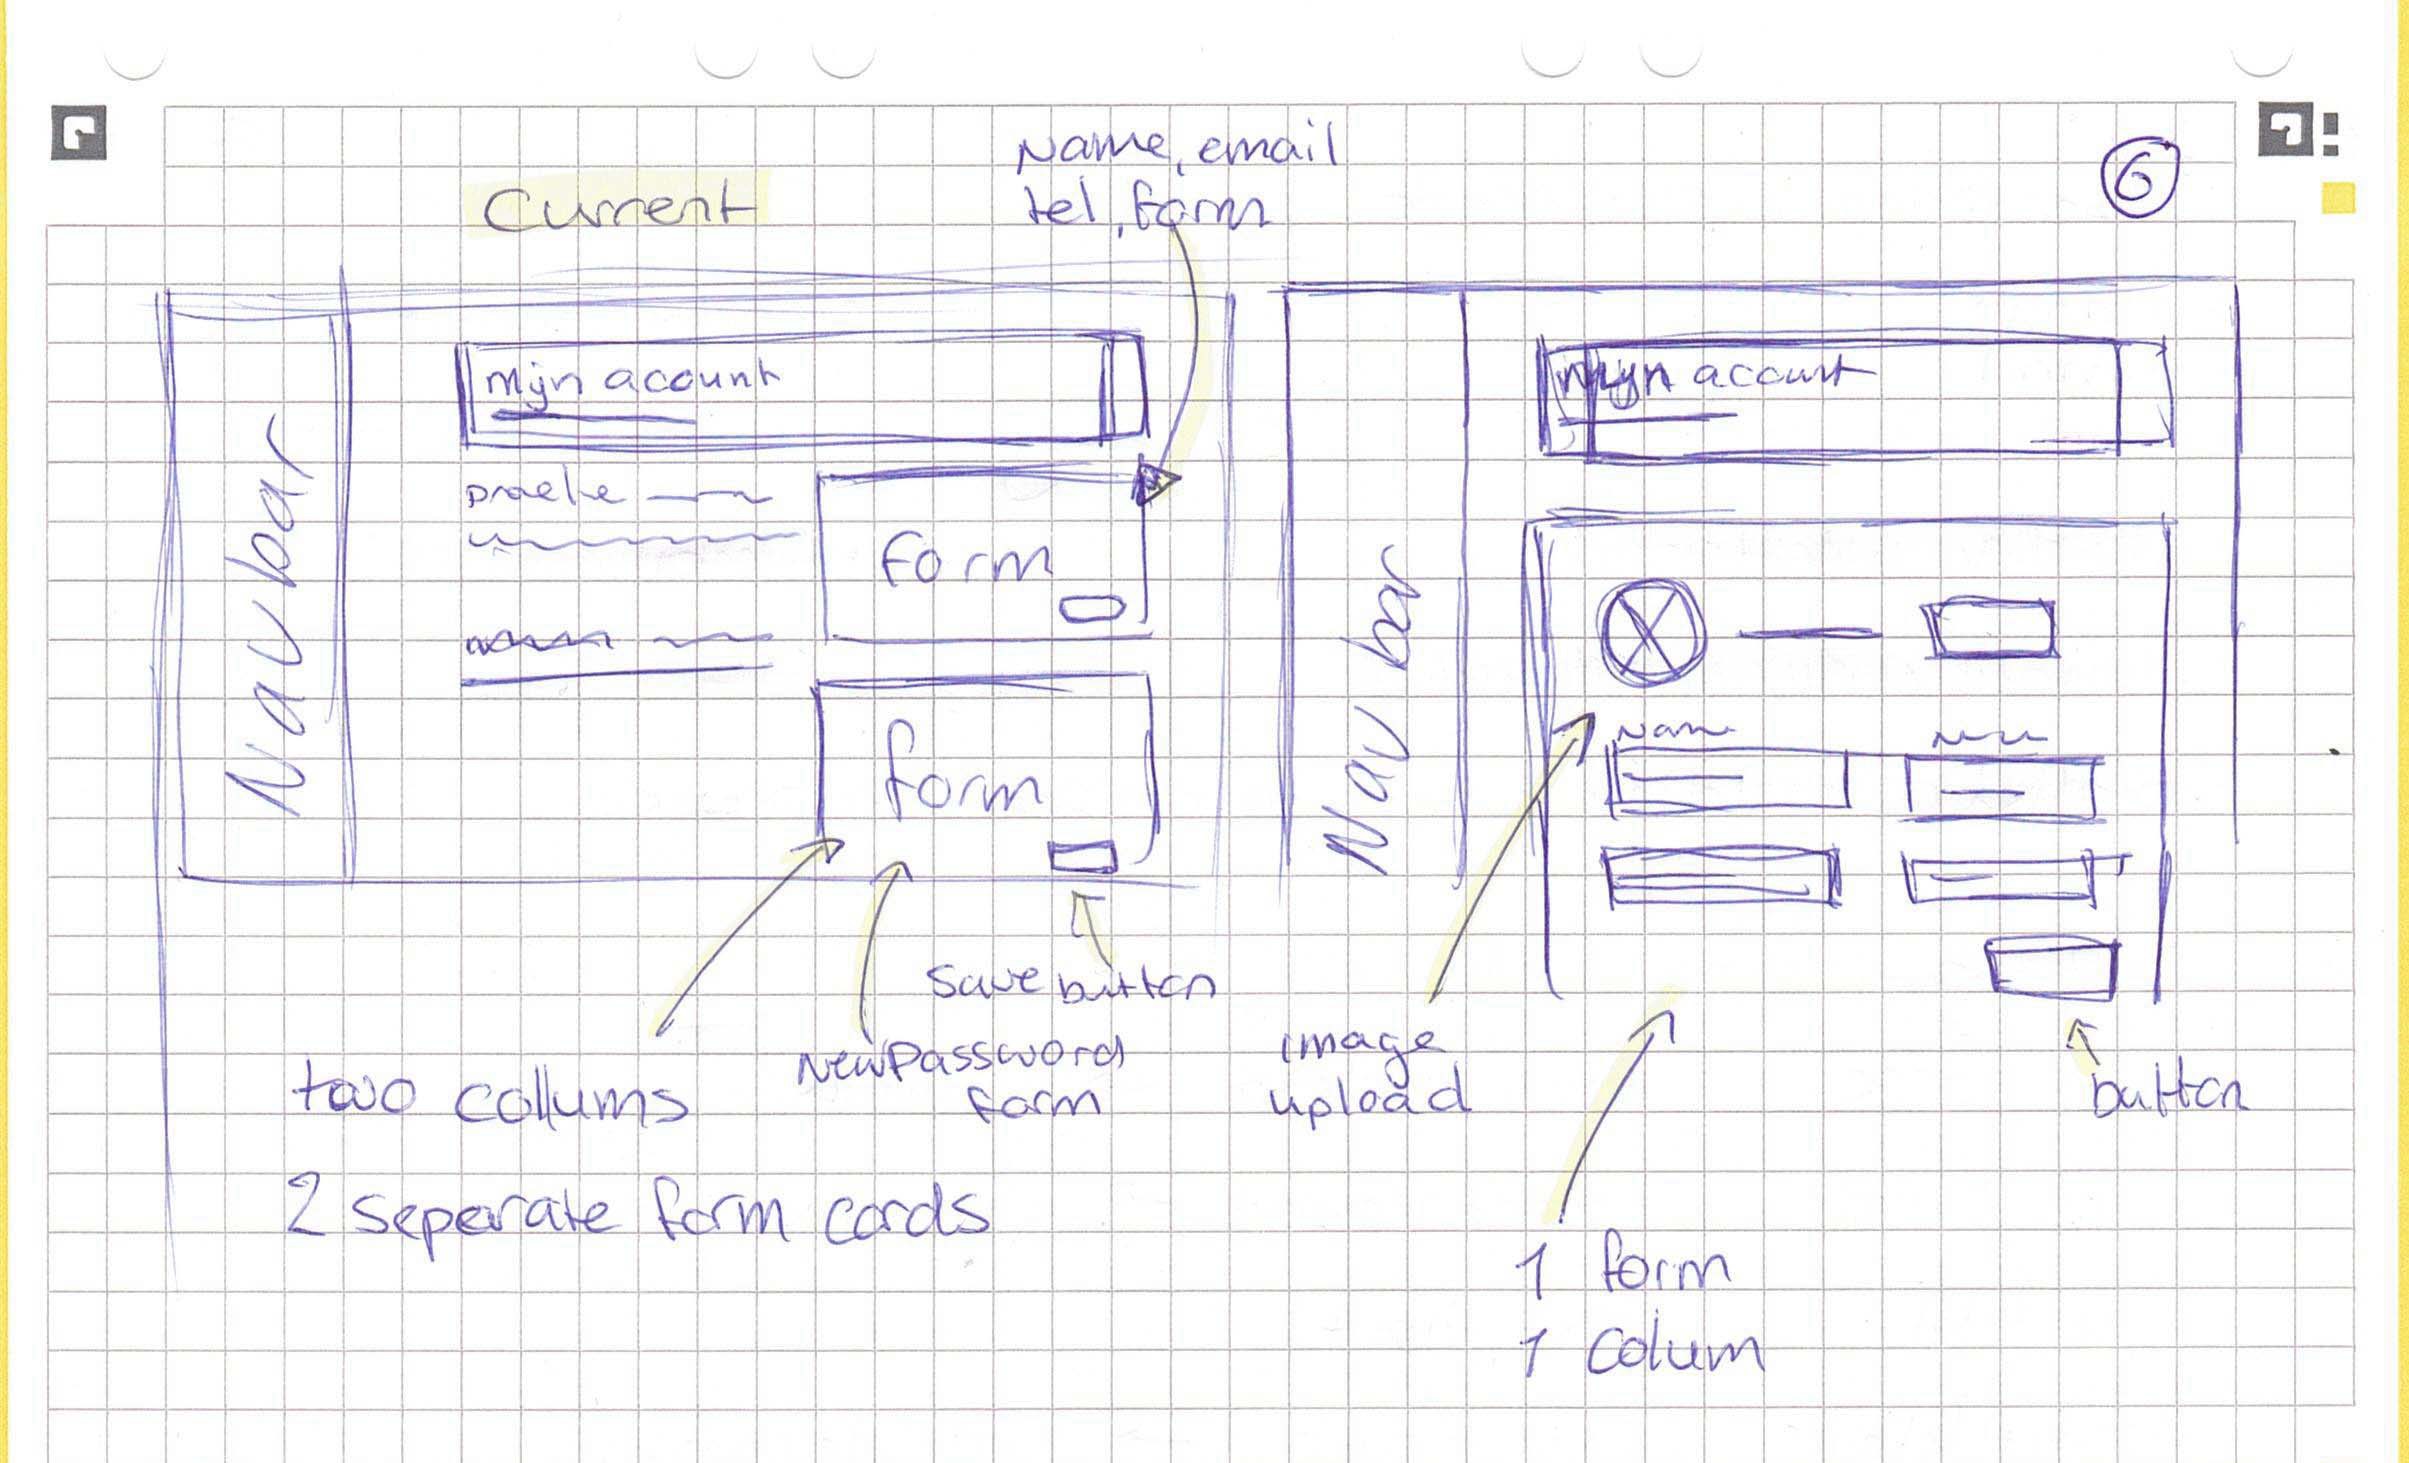 Name, email
tel, form
6
Current
Navbar
mijn acount
form
form
save button
New Password
form
two collums
2 seperate form cards
Nav bar
mijn account
Name
image
upload
button
1 form
1 colum